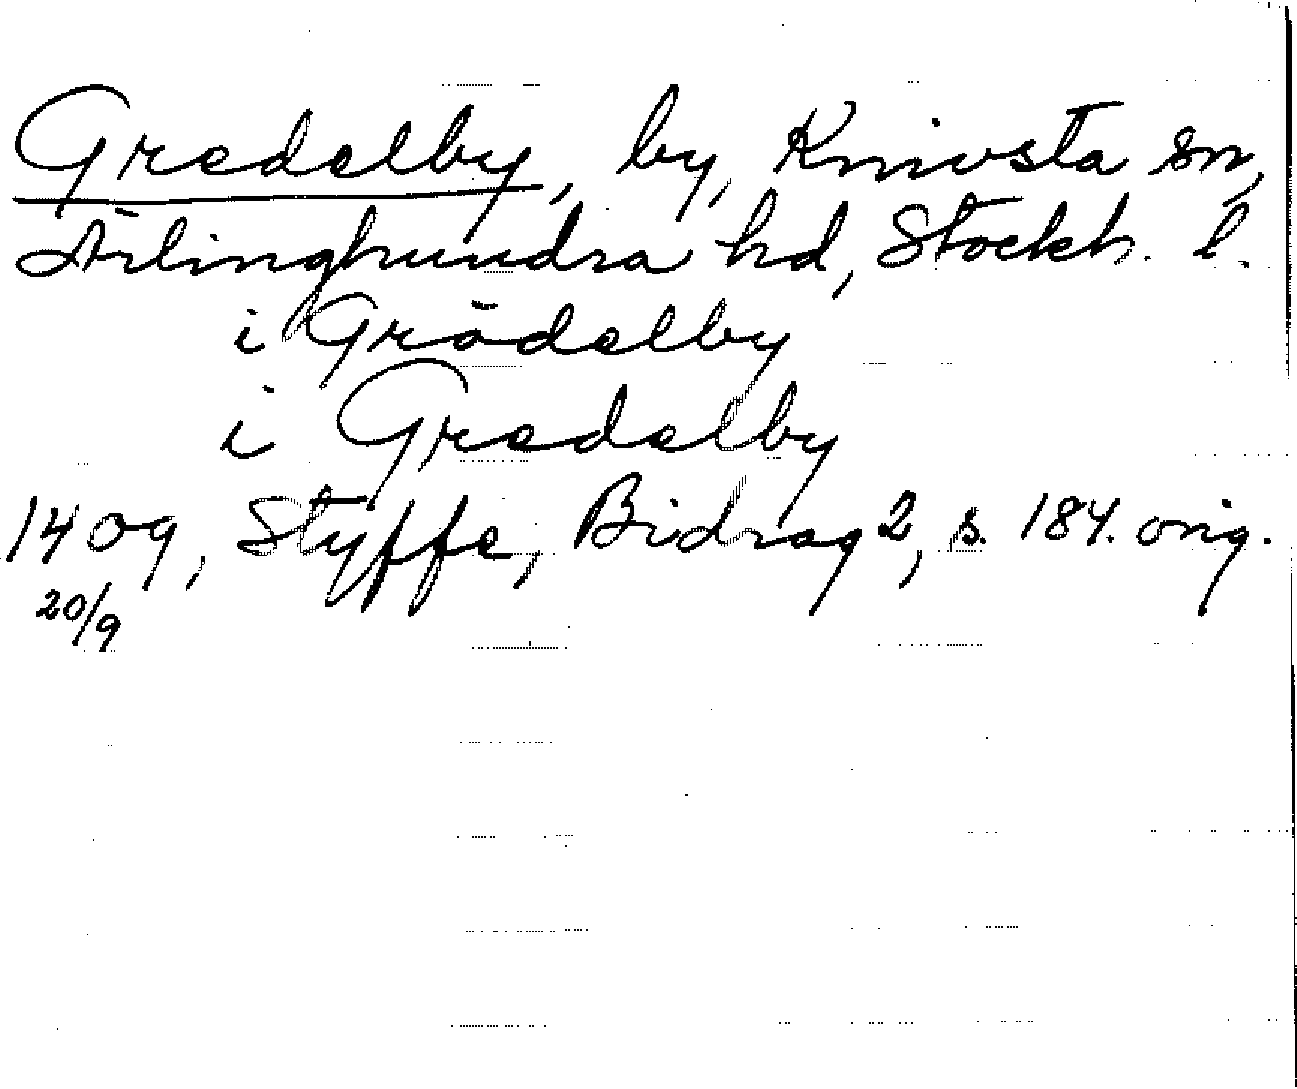 Gredelby, by, Knivsta sn,
Ärlinghundra hd, Stockh. l.
i Grödelby
i Gredelby
1409, Styffe, Bidrag 2, s. 184. orig.
20/9